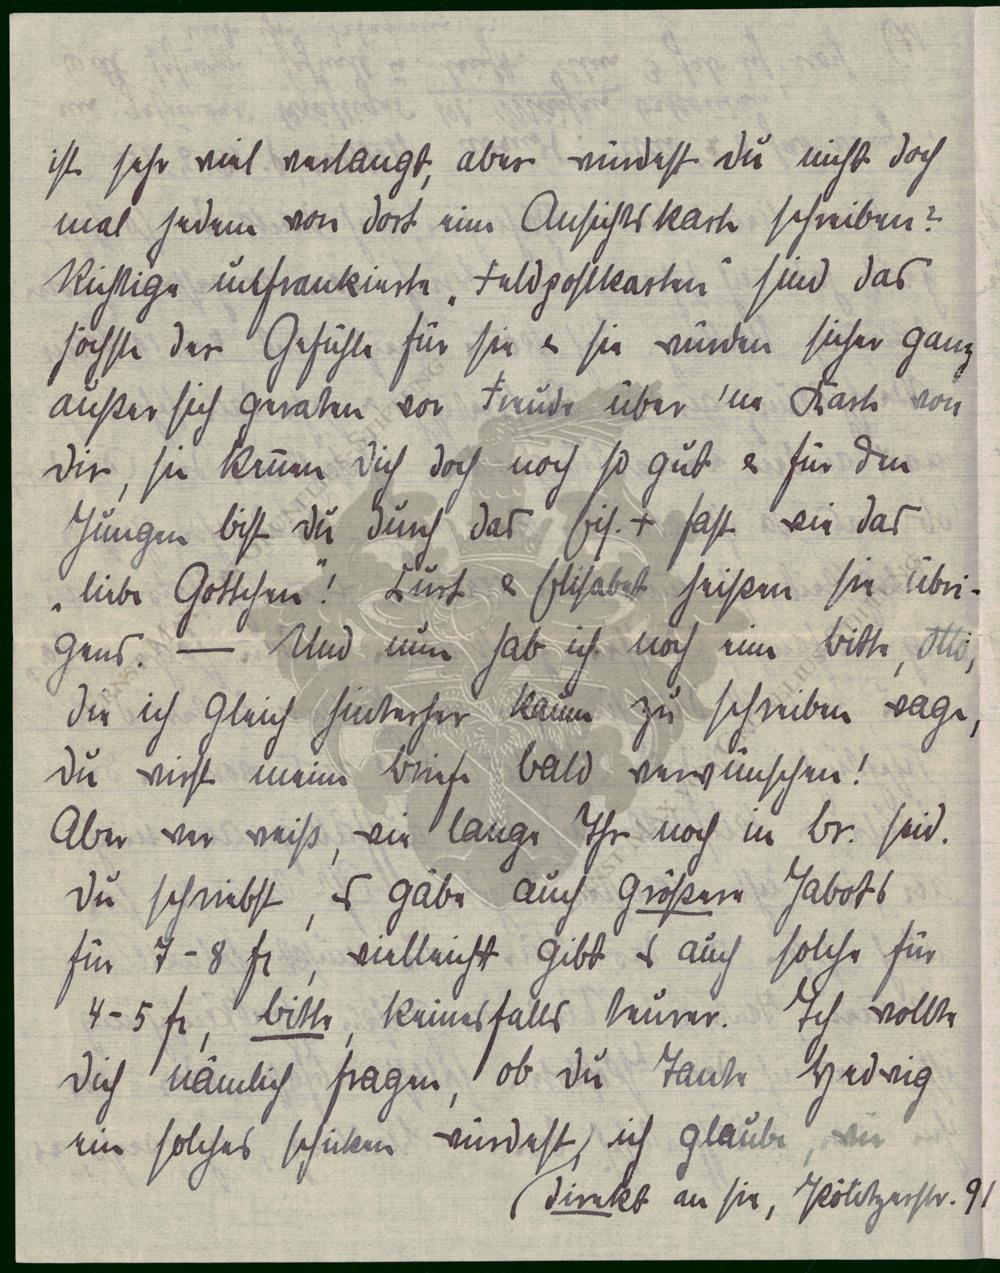 ist sehr viel verlangt, aber würdest Du nicht doch
mal jedem von dort eine Ansichtskarte schreiben?
Richtige unfrankierte „Feldpostkarten" sind das
höchste der Gefühle für sie & sie würden sicher ganz
außer sich geraten vor Freude über 'ne Karte von
Dir, sie kennen Dich doch noch so gut & für den
Jungen bist Du durch das Eis. + fast wie das
„liebe Gottchen"! Kurt & Elisabet heißen sie übri-
gens. — Und nun hab ich noch eine Bitte, Otto,
die ich gleich hinterher kaum zu schreiben wage,
Du wirst meine Briefe bald verwünschen!
Aber wer weiß, wie lange Ihr noch in Br. seid.
Du schriebst, es gäbe auch größere Jabots
für 7-8 fr, vielleicht gibt es auch solche für
4-5 fr, bitte, keinesfalls teurer. Ich wollte
Dich nämlich fragen, ob Du Tante Hedwig
ein solches schicken würdest, ich glaube, wir
(direkt an sie, 91